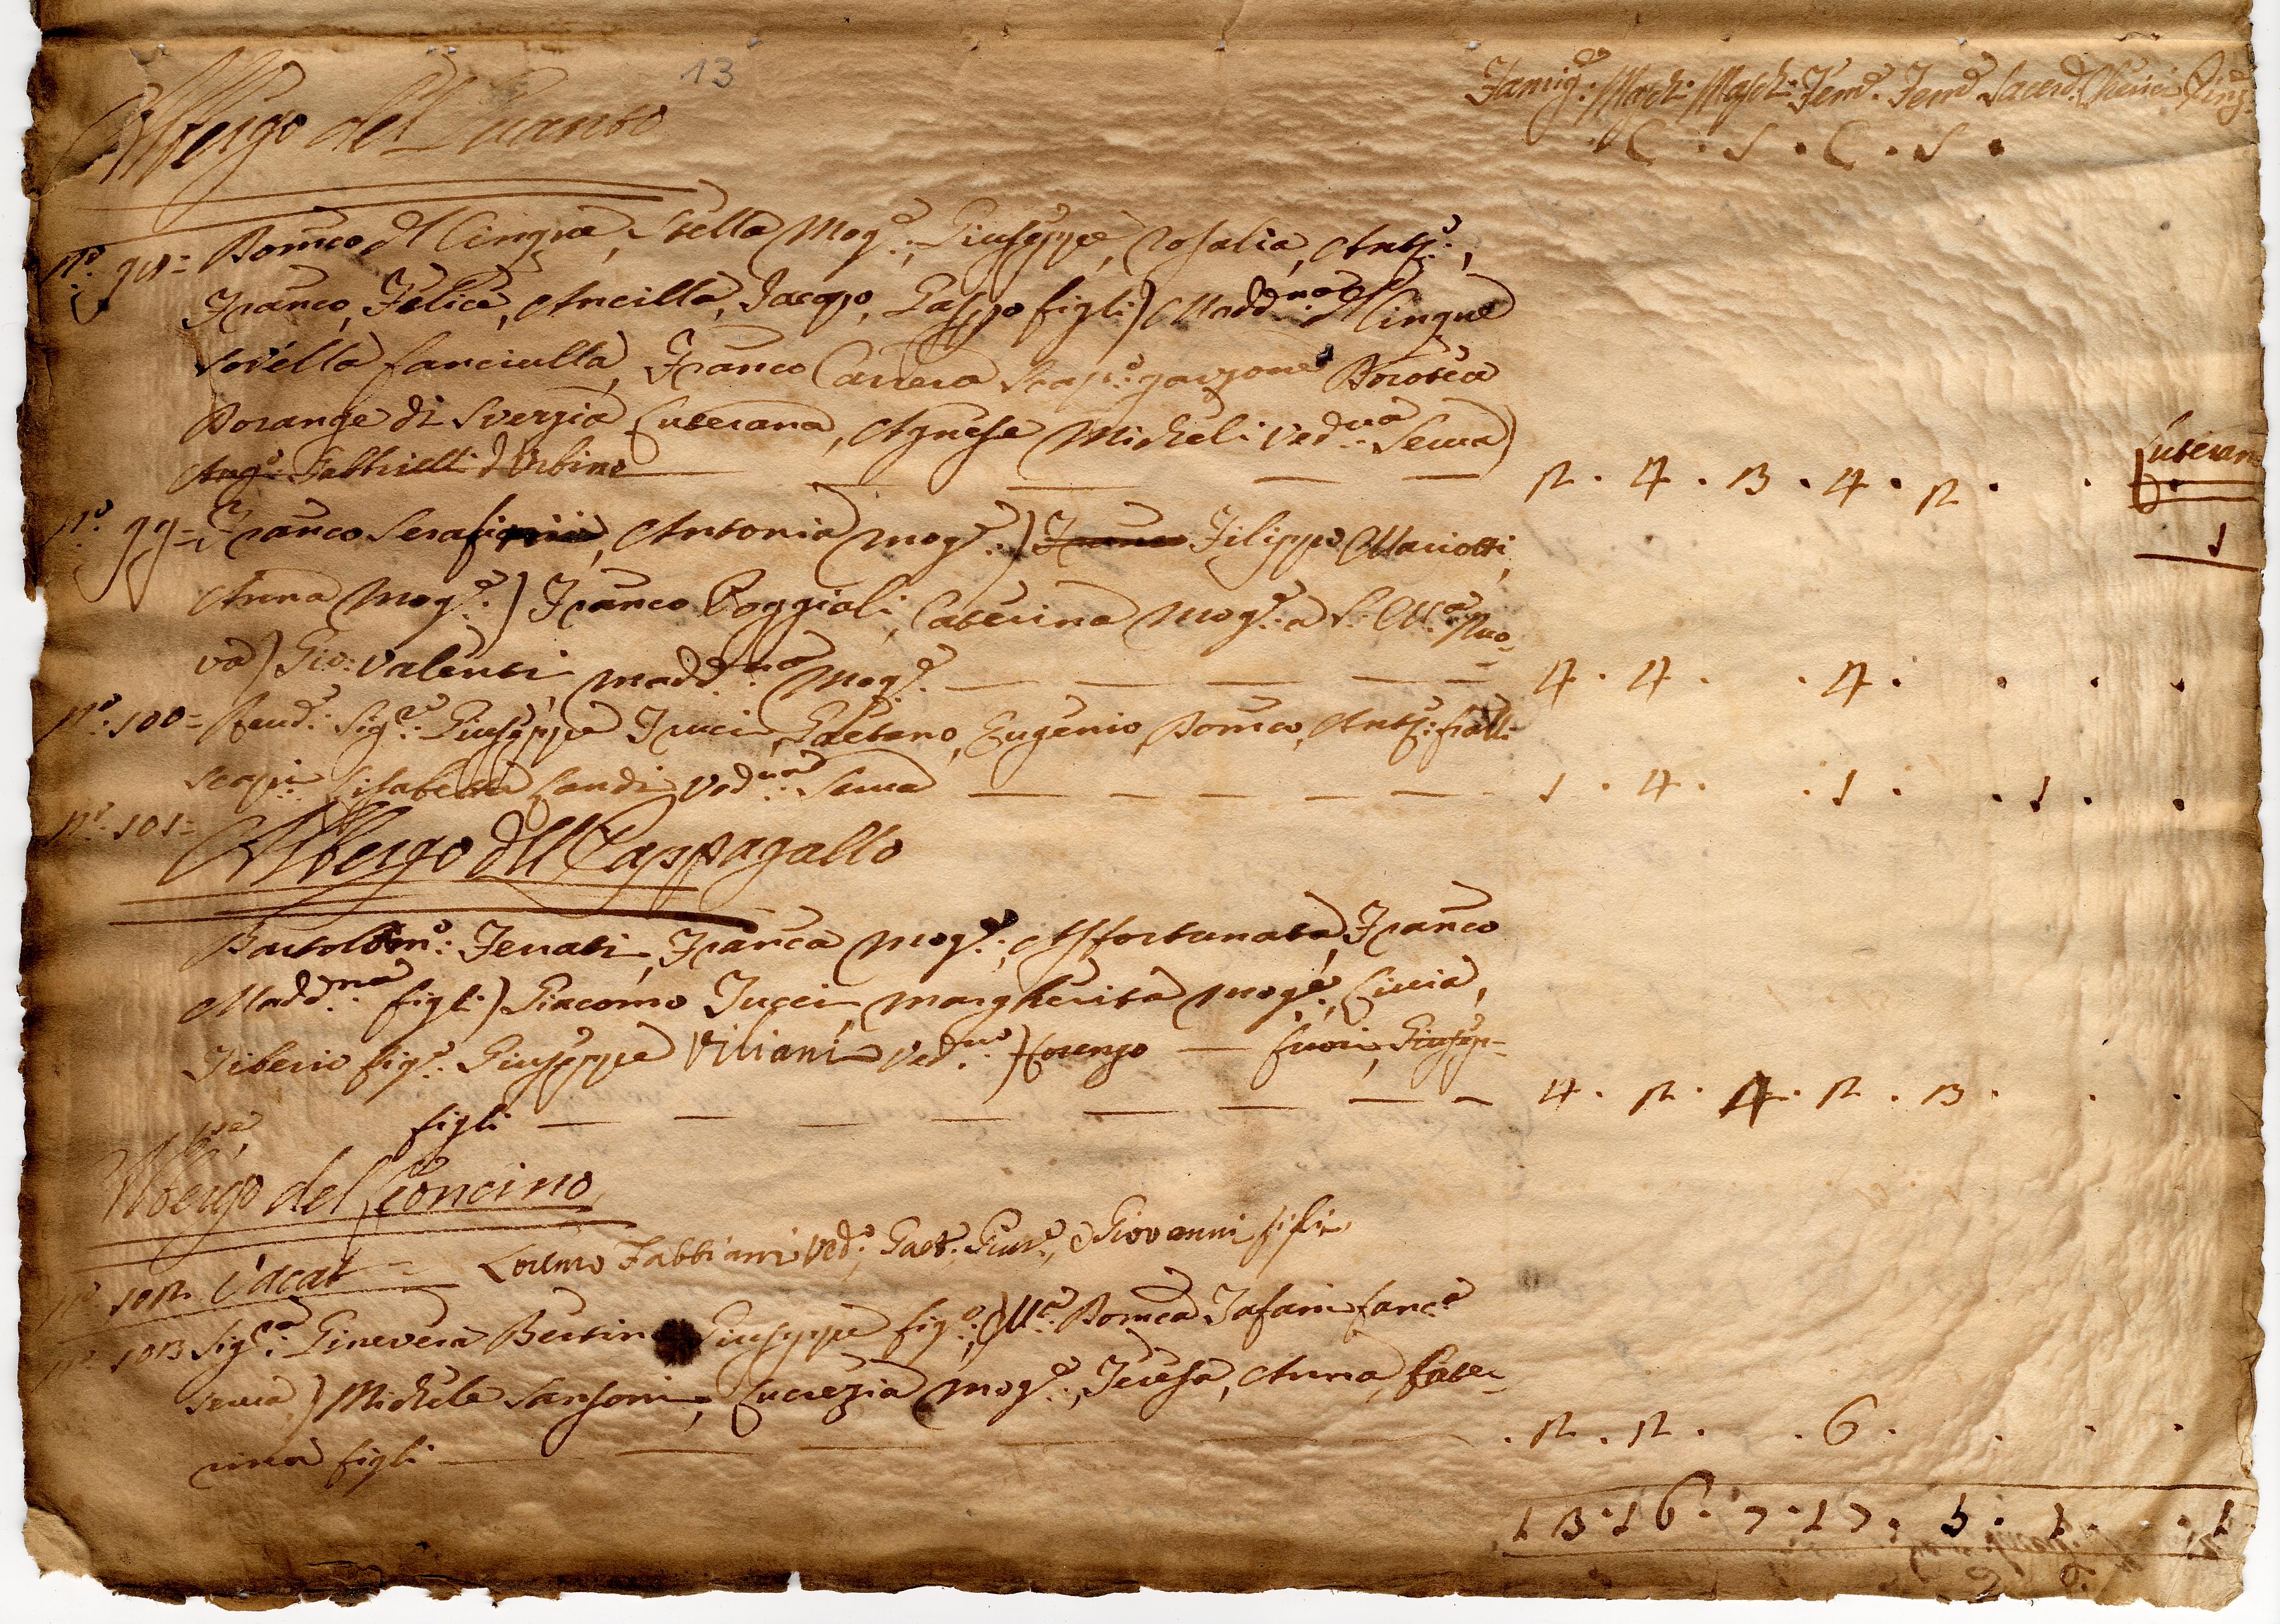 13
Famig:e Masch: Masch: Fem:e Fem:e Sacerd: Cherici
C . S . C . S .
Albergo del Guanto
N.o 98 = Dom̃co del Cinque, Stella Mog:e, Giuseppe, Rosalia, Ant:o,
Franco, Felice, Ancilla, Jacopo, Gasp̃o figli) Madd:na del Cinque
sorella fanciulla, Franco Carrera Scap:o garzone Dorotea
Dorange di Svezia Luterana, Agnese Micheli Ved:va Serva)
Ang:o Fabbrielli d'Urbino
2 . 4 . 3 . 4 . 2 . . Luteran
1
N.o 99 = Franco Serafini, Antonia Mog:e) Franco Filippo Mariotti,
Anna Mog:e) Franco Poggiali, Caterina Mog:e a S: M:a Nuo=
va) Gio: Valenti, Madd:na Mog:e 4 . 4 . . 4 . . . .
N.o 100 = Reud: Sig:re Giuseppe Tucci, Gaetano, Eugenio, Dom̃co, Ant:o fratli
scapi: Lisabetta Landi Ved:va Serva 1 . 4 . . 1 . . 1 . .
N.o 101 =
Albergo dell Cappagallo
Bartolom:o Fenati, Franca Mog:e, Affortunata, Franco
Madd:na figli) Giacomo Tucci, Margherita Mog:e, Livia,
Tiberio fig:i Giuseppe Viliani Ved:vo) Lorenzo — fuori, Giusep=
pe, figli 4 . 2 . 4 . 2 . 3 . . .
Albergo del Leoncino
N.o 102 Vacat = Cosimo Fabbiani Ved:o, Gaet:o Gius:e, e Giovanni figli
N.o 103 Sig:ra Ginevera Bertin Giuseppe fig:o, M:a Dom̃ca Tafani fanc:a
serva) Michele Sansoni, Lucrezia Mog:e, Teresa, Anna, Cater=
rina figli . 2 . 2 . . 6 . . . .
13 . 16 . 7 . 17 . 5 . 1 . . 1